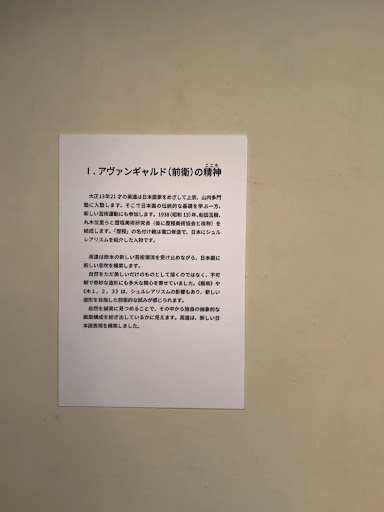 Ⅰ．アヴァンギャルド（前衛）の精神
こころ
大正13年21才の英達は日本画家をめざして上京、山内多門
塾に入塾します。そこで日本画の伝統的な基礎を学ぶ一方、
新しい芸術運動にも参加します。1938（昭和13）年、船田玉樹、
丸木位里らと歴程美術研究会（後に歴程美術協会と改称）を
結成します。「歴程」の名付け親は瀧口修造で、日本にシュル
レアリスムを紹介した人物です。
英達は欧米の新しい芸術潮流を受け止めながら、日本画に
新しい造形を模索します。
自然をただ美しいだけのものとして描くのではなく、不可
解で奇妙な造形にも多大な関心を寄せていました。
や
《木１，２，３》は、シュルレアリスムの影響もあり、新しい
造形を目指した前衛的な試みが感じられます。
自然を誠実に見つめることで、その中から独自の抽象的な
画面構成を紡ぎ出しているかに見えます。英達は、新しい日
本画表術を模索しました。